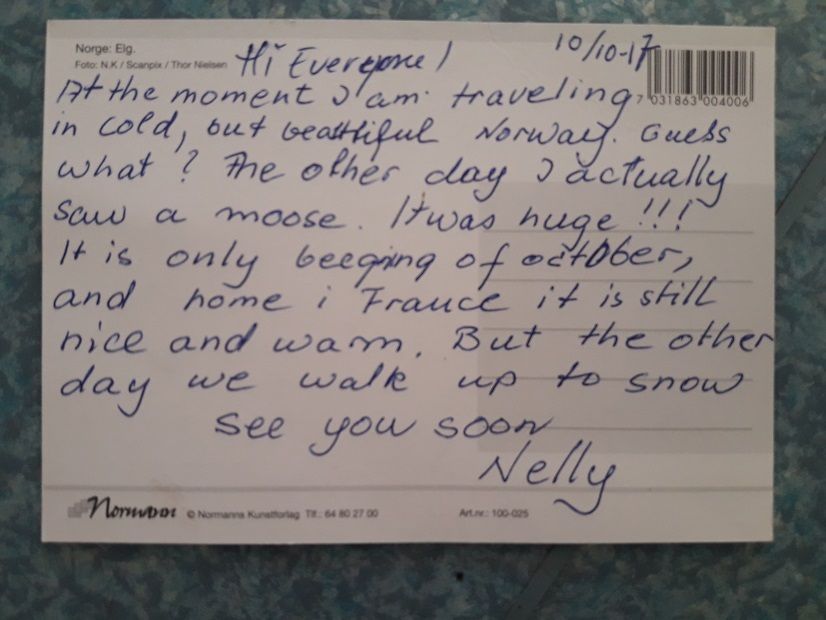 Norge: Elg.
Foto: N.K / Scanpix / Thor Nielsen
Hi Everyone!
10/10-17
7 031863 004006
At the moment I am traveling
in cold, but beautiful Norway. Guess
what? The other day I actually
saw a moose. It was huge !!!
It is only beeging of october,
and home i France it is still
nice and warm. But the other
day we walk up to snow
See you soon
Nelly
Normann © Normanns Kunstforlag Tlf.: 64 80 27 00 Art.nr.: 100-025